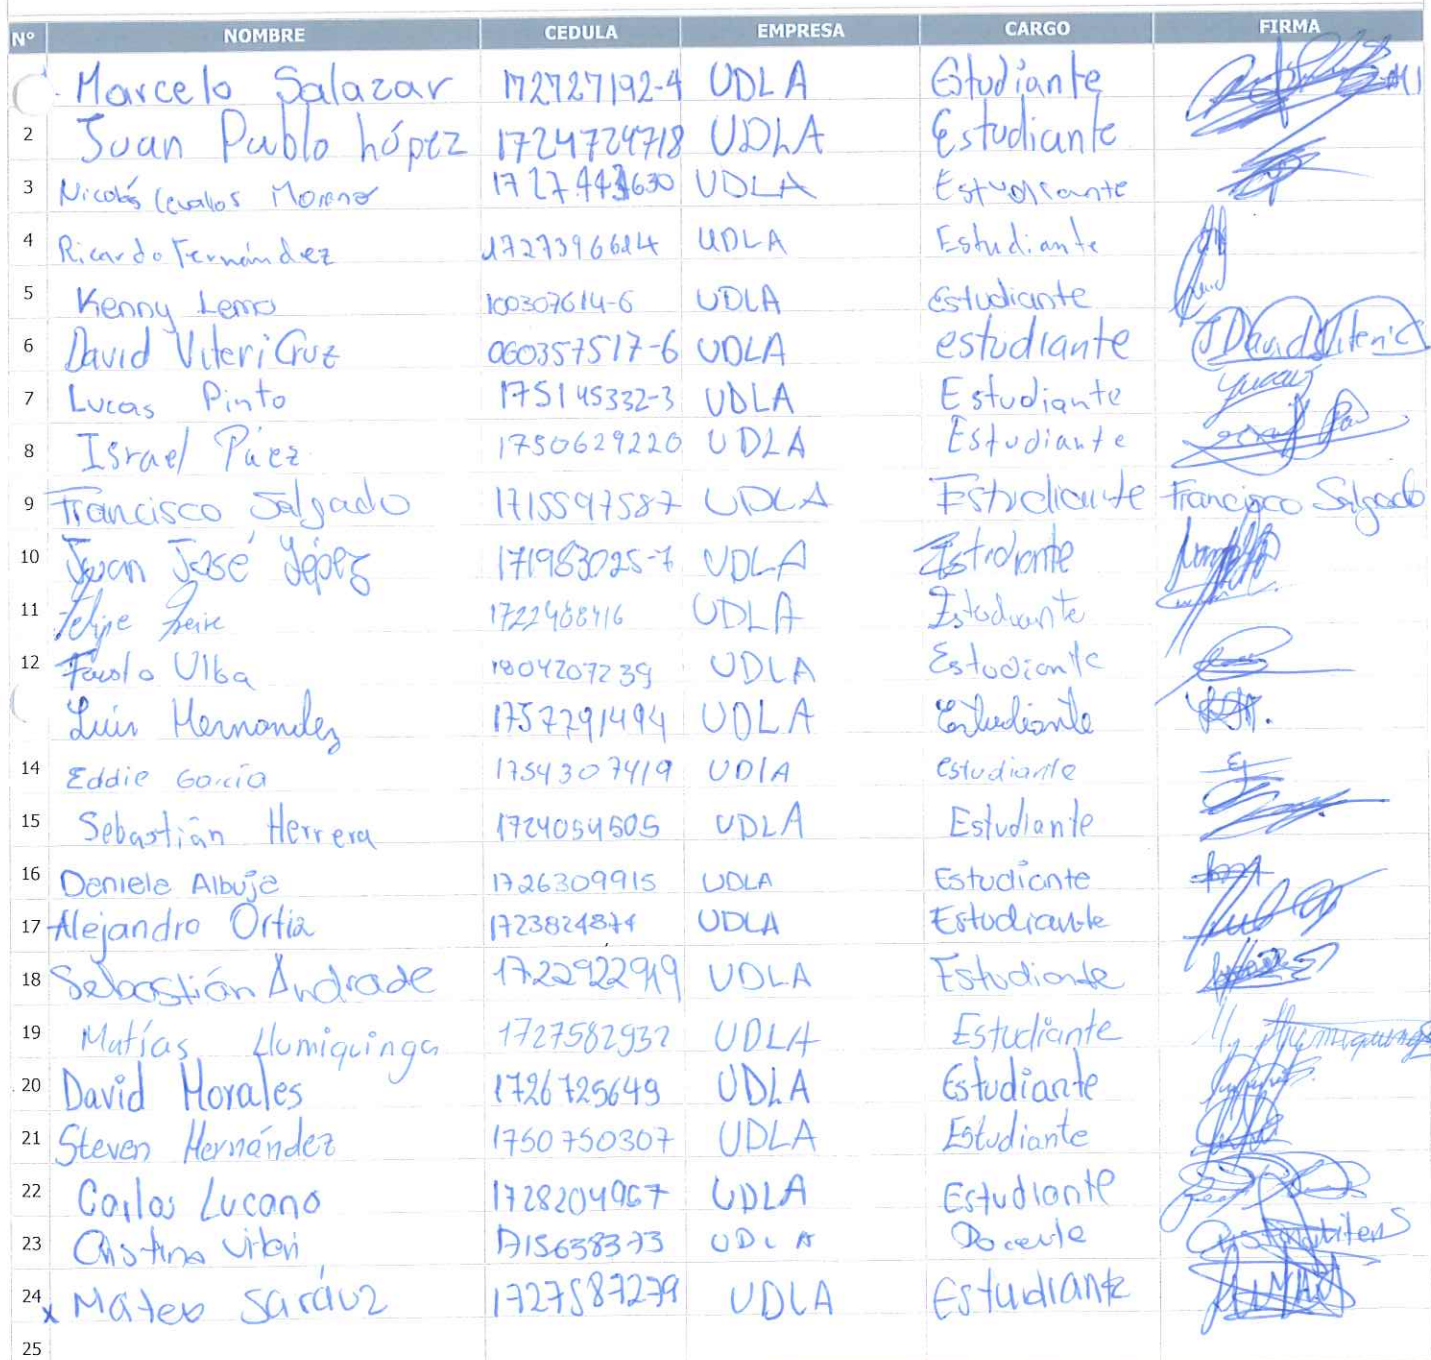 N° NOMBRE CEDULA EMPRESA CARGO FIRMA
Marcelo Salazar 172727192-4 UDLA Estudiante
2 Juan Pablo López 1724724718 UDLA Estudiante
3 Nicolás Cevallos Moreno UDLA Estudiante
4 Ricardo Fernández 1727396614 UDLA Estudiante
5 Kenny Lema 100307614-6 UDLA Estudiante
6 David Viteri Cruz 060357517-6 UDLA estudiante J David Viteri C
7 Lucas Pinto 175145332-3 UDLA Estudiante Lucas
8 Israel Páez 1750629220 UDLA Estudiante
9 Francisco Salgado 1715597587 UDLA Estudiante Francisco Salgado
10 Juan José Yépez 171983025-7 UDLA Estudiante
11 Felipe Freire 1722468416 UDLA Estudiante
12 Fausto Ulba 1804207239 UDLA Estudiante
Luis Hernandez 1757291494 UDLA Estudiante
14 Eddie García 1754307419 UDLA estudiante
15 Sebastián Herrera 1724054505 UDLA Estudiante
16 Daniela Albuja 1726309915 UDLA Estudiante
17 Alejandro Ortiz 1723824874 UDLA Estudiante
18 Sebastián Andrade 1722922919 UDLA Estudiante
19 Matías Llumiquinga 1727582932 UDLA Estudiante M. Llumiquinga
20 David Morales 1726725649 UDLA Estudiante
21 Steven Hernández 1750750307 UDLA Estudiante
22 Carlos Lucano 1728204967 UDLA Estudiante
23 Cristina Viteri 1715638373 UDLA Docente
24 x Mateo Saráuz 1727587279 UDLA Estudiante
25